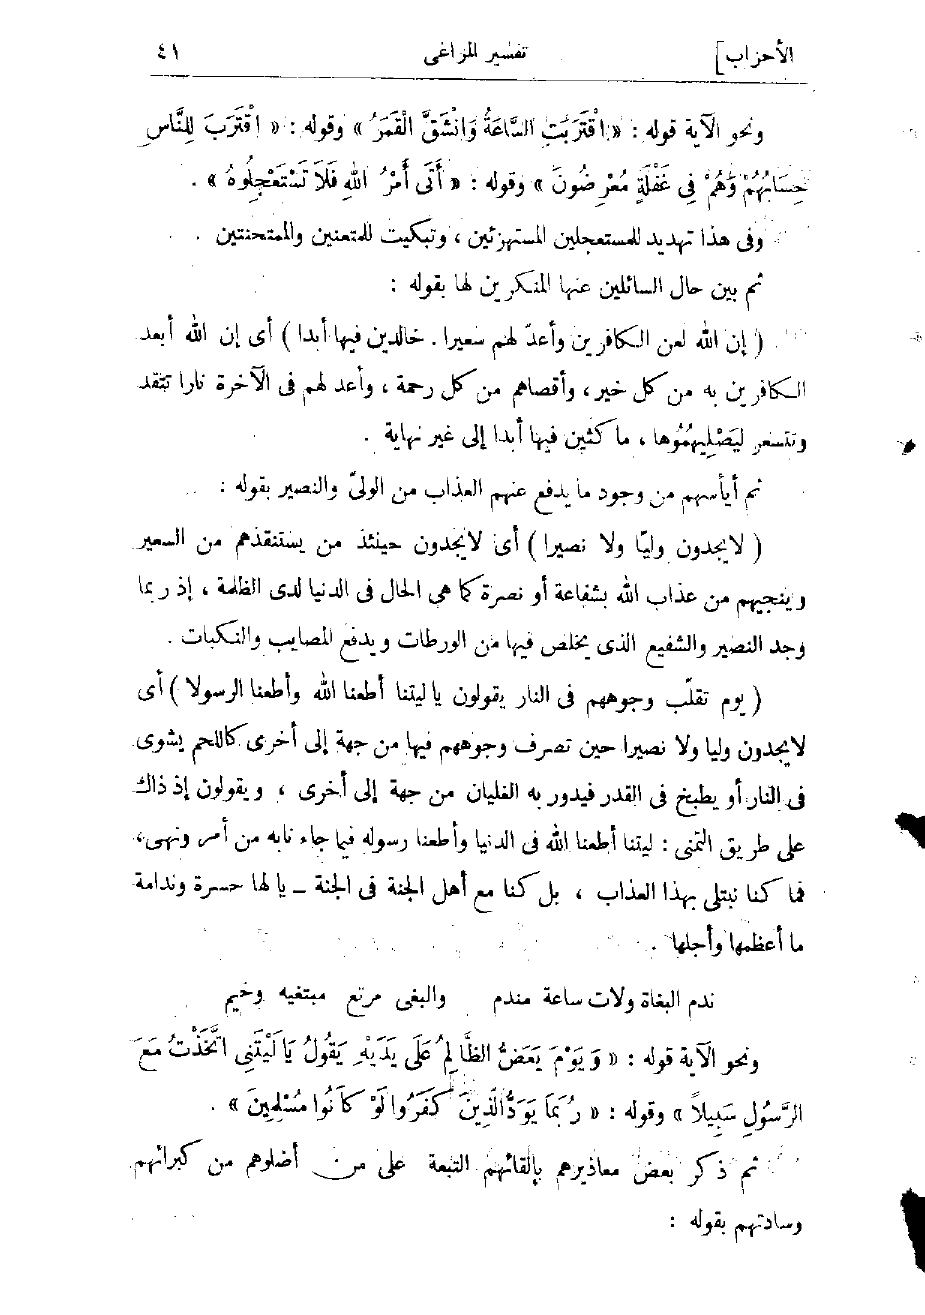 الأحزاب] تفسير المراغى ٤١
ونحو الآية قوله : « اقْتَرَبَتِ السَّاعَةُ وَانْشَقَّ الْقَمَرُ » وقوله : « اقْتَرَبَ لِلنَّاسِ
حِسَابُهُمْ وَهُمْ فِى غَفْلَةٍ مُعْرِضُونَ » وقوله : « أَتَى أَمْرُ اللهِ فَلَا تَسْتَعْجِلُوهُ » .
وفى هذا تهديد للمستعجلين المستهزئين ، وتبكيت للمتعنين والممتحنتين .
ثم بين حال السائلين عنها المنكرين لها بقوله :
( إن الله لعن الكافرين وأعدّ لهم سعيرا . خالدين فيها أبدا ) أى إن الله أبعد
الكافرين به من كل خير ، وأقصاهم من كل رحمة ، وأعد لهم فى الآخرة نارا تتقد
وتتسعر ليَصْلِيهُمُوها ، ماكثين فيها أبدا إلى غير نهاية .
ثم أيأسهم من وجود ما يدفع عنهم العذاب من الولىّ والنصير بقوله :
( لايجدون وليّا ولا نصيرا ) أى لايجدون حينئذ من يستنقذهم من السعير
وينجيهم من عذاب الله بشفاعة أو نصرة كما هى الحال فى الدنيا لدى الظلمة ، إذ ربما
وجد النصير والشفيع الذى يخلص فيها من الورطات ويدفع المصايب والنكبات .
( يوم تقلّب وجوههم فى النار يقولون ياليتنا أطعنا الله وأطعنا الرسولا ) أى
لايجدون وليا ولا نصيرا حين تصرف وجوههم فيها من جهة إلى أخرى كاللحم يشوى
فى النار أو يطبخ فى القدر فيدور به الغليان من جهة إلى أخرى ، ويقولون إذ ذاك
على طريق التمنى : ليتنا أطعنا الله فى الدنيا وأطعنا رسوله فيما جاءنا به من أمر ونهى ،
فما كنا نبتلى بهذا العذاب ، بل كنا مع أهل الجنة فى الجنة ــ يالها حسرة وندامة
ما أعظمها وأجلها .
ندم البغاة ولات ساعة مندم والبغى مرتع مبتغيه وخيم
ونحو الآية قوله : « وَيَوْمَ يَعَضُّ الظَّالِمُ عَلَى يَدَيْهِ يَقُولُ يَا لَيْتَنِى اتَّخَذْتُ مَعَ
الرَّسُولِ سَبِيلاً » وقوله : « رُبَمَا يَوَدُّ الَّذِينَ كَفَرُوا لَوْ كَانُوا مُسْلِمِينَ » .
ثم ذكر بعض معاذيرهم بإلقائهم التبعة على من أضلوهم من كبرائهم
وسادتهم بقوله :